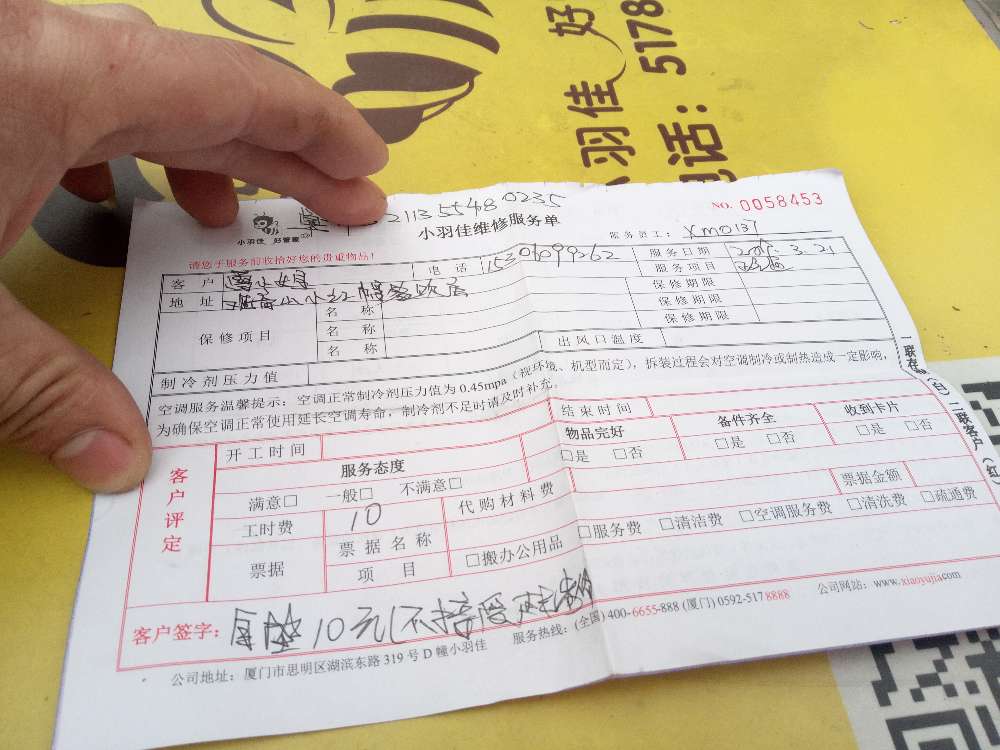 小羽佳 好
电话: 5178
21135548 0235
小羽佳 好管家
小羽佳维修服务单
NO. 0058453
服务员工: XM0137
请您于服务前收拾好您的贵重物品!
客户
电话: 15306099262
服务日期 3.21
地址
服务项目
保修项目
名称 保修期限
名称 保修期限
名称 保修期限
制冷剂压力值
出风口温度
空调服务温馨提示: 空调正常制冷剂压力值为0.45mpa (视环境、机型而定), 拆装过程会对空调制冷或制热造成一定影响,
为确保空调正常使用延长空调寿命, 制冷剂不足时请及时补充。
客户评定
开工时间
结束时间
服务态度
物品完好
备件齐全
收到卡片
满意□ 一般□ 不满意□
□是 □否
□是 □否
□是 □否
工时费 10
代购材料费
票据金额
票据
票据名称
项目
□搬办公用品 □服务费 □清洁费 □空调服务费 □清洗费 □疏通费
客户签字: 10元(不接受
公司地址: 厦门市思明区湖滨东路319号D幢小羽佳
服务热线: (全国) 400-6655-888 (厦门) 0592-5178888
公司网站: www.xiaoyujia.com
一联存
二联客户(红